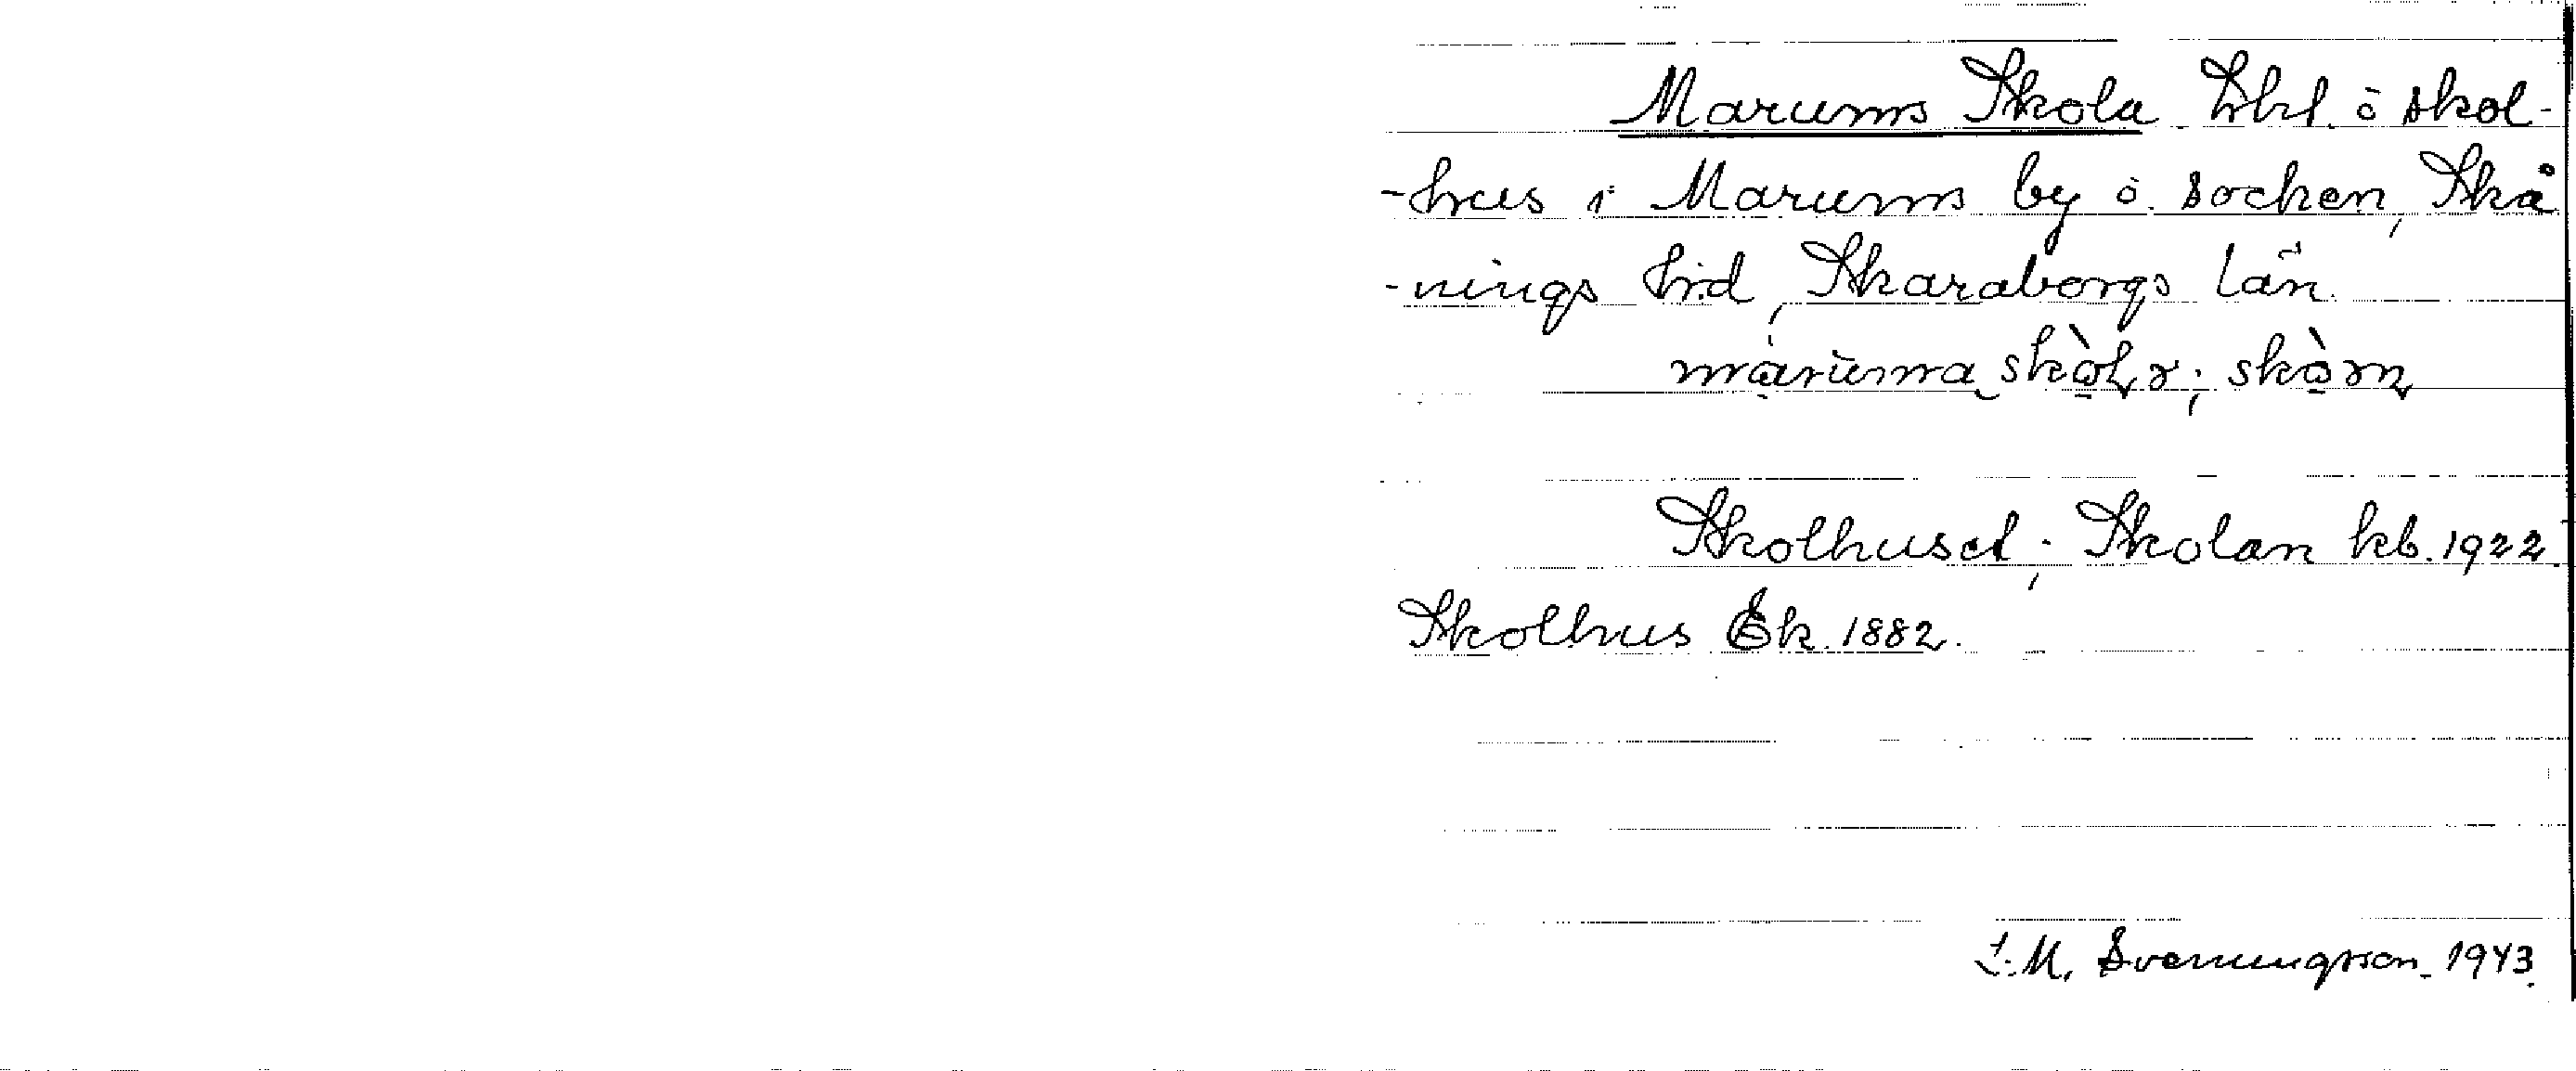 Marums Skola Trkl. o skol-
-hus i Marums by o. socken, Skå
-nings h:d, Skaraborgs län.
Skolhuset; Skolan kb. 1922.
Skolhus Ek. 1882.
Svenungsson 1943.